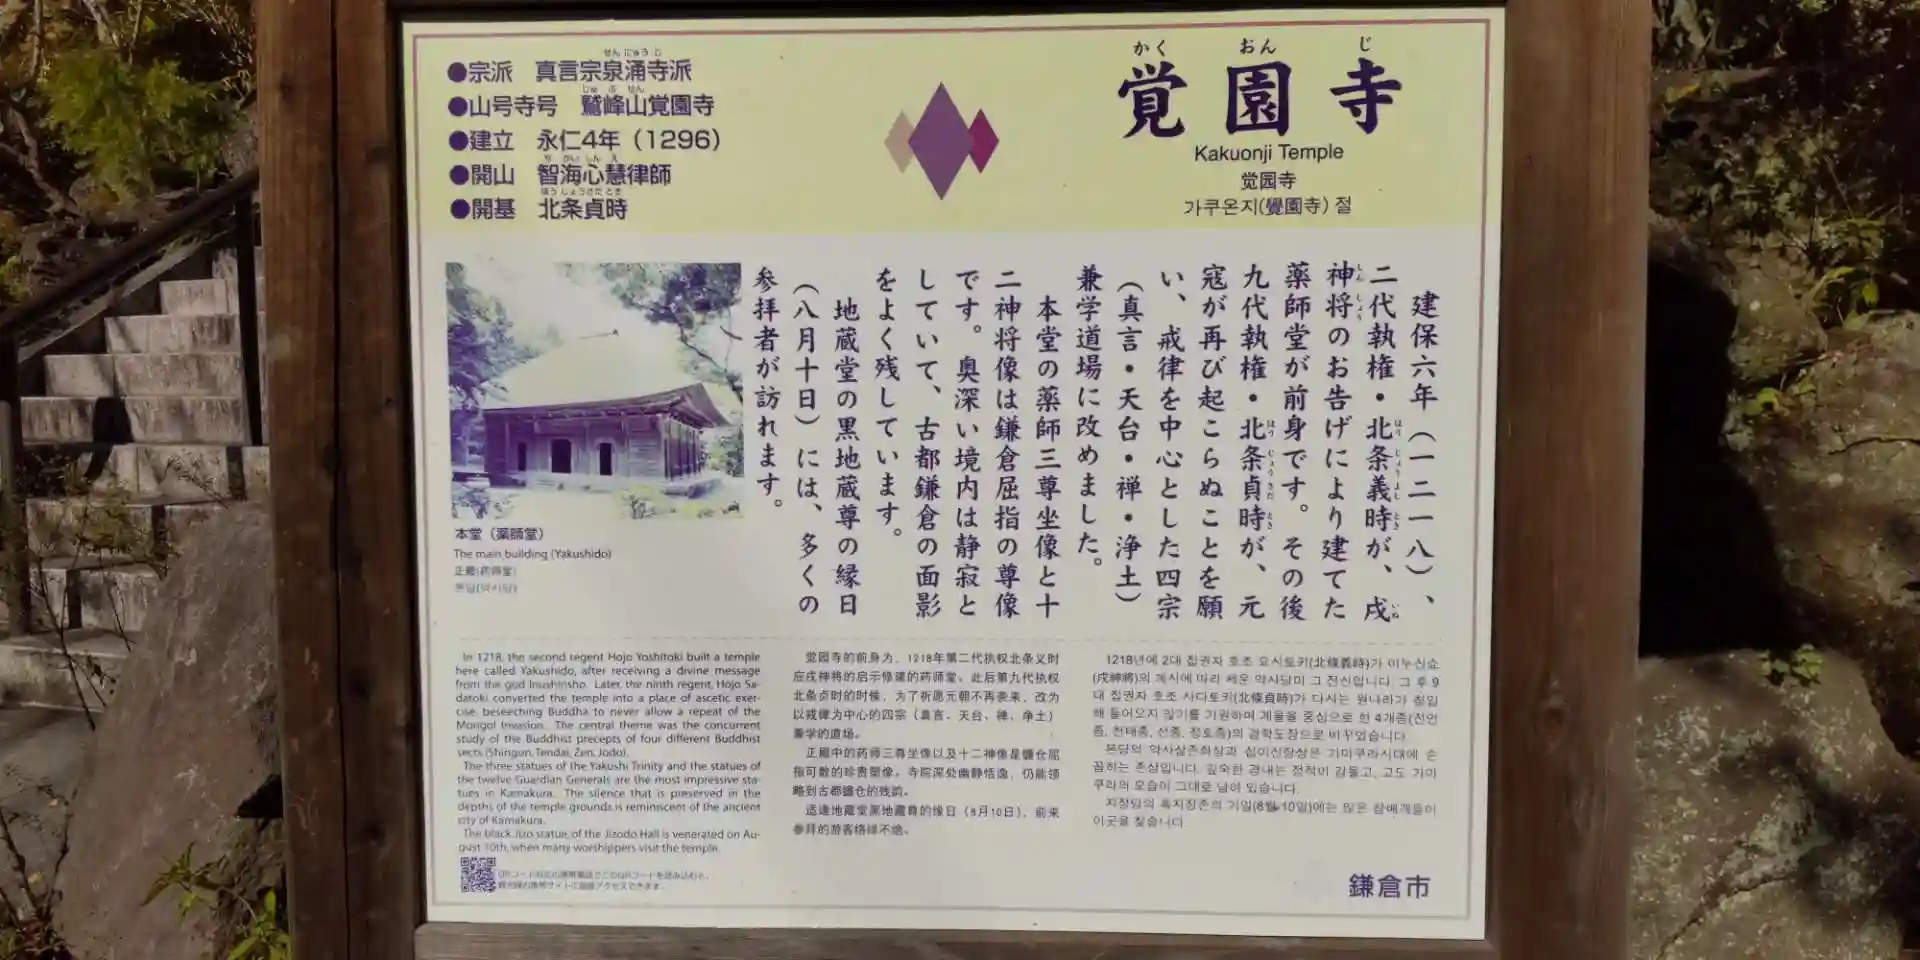 ●宗派 真言宗泉涌寺派
●山号寺号 鷲峰山覚園寺
●建立 永仁4年（1296）
●開山 智海心慧律師
●開基 北条貞時
かく おん じ
覚園寺
Kakuonji Temple
觉园寺
가쿠온지(覺園寺) 절
建保六年（一二一八）、
二代執権・北条義時が、戌
神将のお告げにより建てた
薬師堂が前身です。その後
九代執権・北条貞時が、元
寇が再び起こらぬことを願
い、戒律を中心とした四宗
（真言・天台・禅・浄土）
兼学道場に改めました。
本堂の薬師三尊坐像と十
二神将像は鎌倉屈指の尊像
です。奥深い境内は静寂と
していて、古都鎌倉の面影
をよく残しています。
地蔵堂の黒地蔵尊の縁日
（八月十日）には、多くの
参拝者が訪れます。
本堂（薬師堂）
The main building (Yakushido)
正殿(药师堂)
본당(약사당)
In 1218, the second regent Hojo Yoshitoki built a temple
here called Yakushido, after receiving a divine message
from the god Inushinsho. Later, the ninth regent, Hojo Sa-
datoki converted the temple into a place of ascetic exer-
cise, beseeching Buddha to never allow a repeat of the
Mongol Invasion. The central theme was the concurrent
study of the Buddhist precepts of four different Buddhist
sects (Shingon, Tendai, Zen, Jodo).
The three statues of the Yakushi Trinity and the statues of
the twelve Guardian Generals are the most impressive sta-
tues in Kamakura. The silence that is preserved in the
depths of the temple grounds is reminiscent of the ancient
city of Kamakura.
The black Jizo statue of the Jizodo Hall is venerated on Au-
gust 10th, when many worshippers visit the temple.
觉园寺的前身为，1218年第二代执权北条义时
应戌神将的启示修建的药师堂。此后第九代执权
北条贞时的时候，为了祈愿元朝不再袭来，改为
以戒律为中心的四宗（真言、天台、禅、净土）
兼学的道场。
正殿中的药师三尊坐像以及十二神像是镰仓屈
指可数的珍贵塑像。寺院深处幽静恬逸，仍能领
略到古都镰仓的残韵。
适逢地藏堂黑地藏尊的缘日（8月10日），前来
参拜的游客络绎不绝。
1218년에 2대 집권자 호조 요시토키(北條義時)가 이누신쇼
(戌神將)의 계시에 따라 세운 약사당이 그 전신입니다. 그 후 9
대 집권자 호조 사다토키(北條貞時)가 다시는 원나라가 침입
해 들어오지 않기를 기원하며 계율을 중심으로 한 4개종(진언
종, 천태종, 선종, 정토종)의 겸학도장으로 바꾸었습니다.
본당의 약사삼존좌상과 십이신장상은 가마쿠라시대에 손
꼽히는 존상입니다. 깊숙한 경내는 정적이 감돌고, 고도 가마
쿠라의 모습이 그대로 남아 있습니다.
지장당의 흑지장존의 기일(8월 10일)에는 많은 참배객들이
이곳을 찾습니다.
鎌倉市